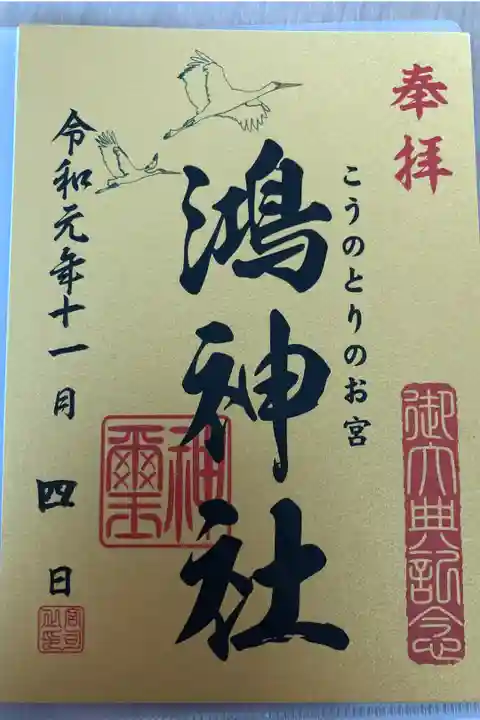 奉拝
御大典記念
こうのとりのお宮
鴻神社
神璽
令和元年十一月四日